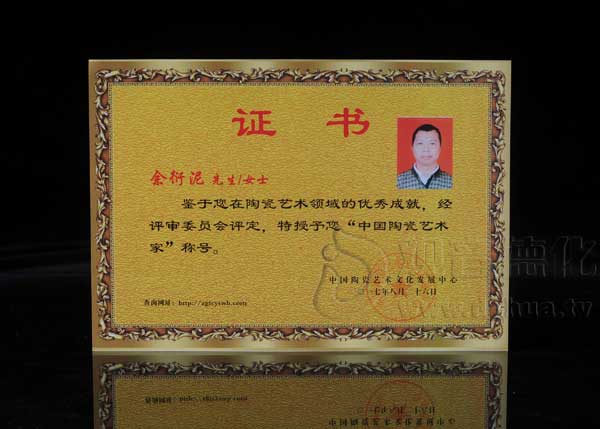 证 书
余衍泥 先生/女士
鉴于您在陶瓷艺术领域的优秀成就，经
评审委员会评定，特授予您“中国陶瓷艺术
家”称号。
中国陶瓷艺术文化发展中心
七年八月二十六日
查询网址：
德化